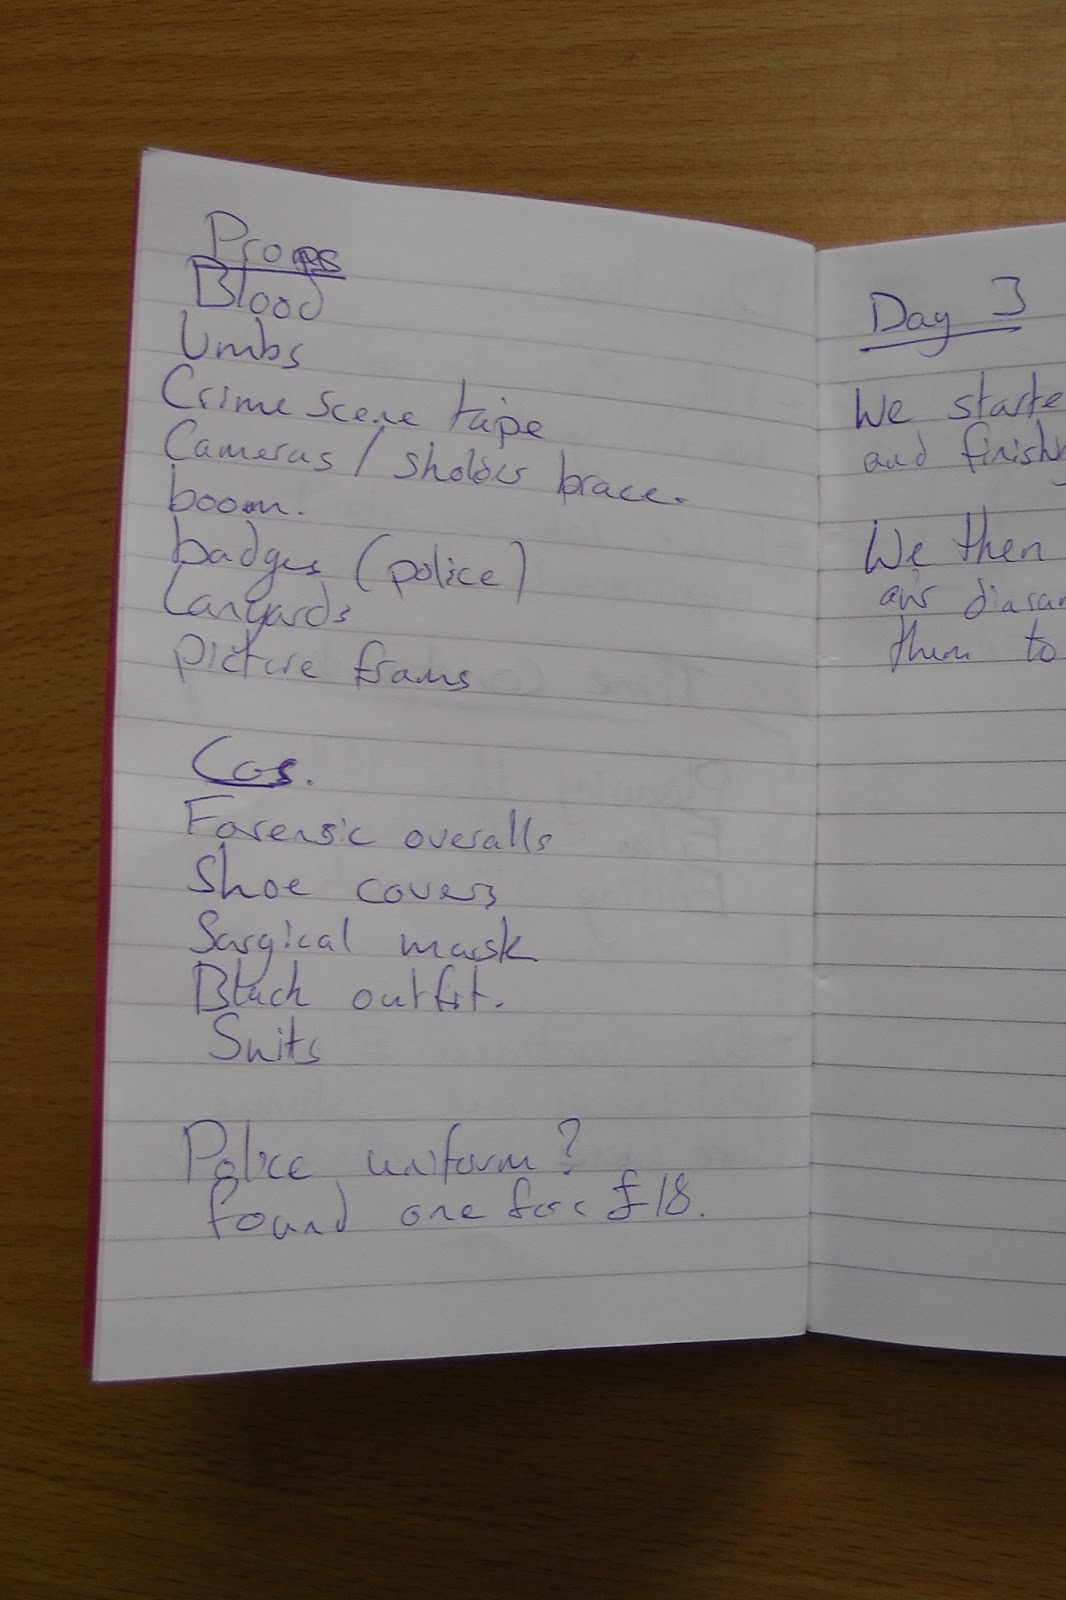 Props
Blood
Limbs
Crime scene tape
Cameras / sholder brace.
boom.
badges (police)
Lanyards
picture frams
Cos.
Forensic overalls
Shoe covers
Sargical mask
Black outfit.
Suits
Police uniform?
found one for £18.
Day 3
We starte
and finish
We then
air diasar
them to